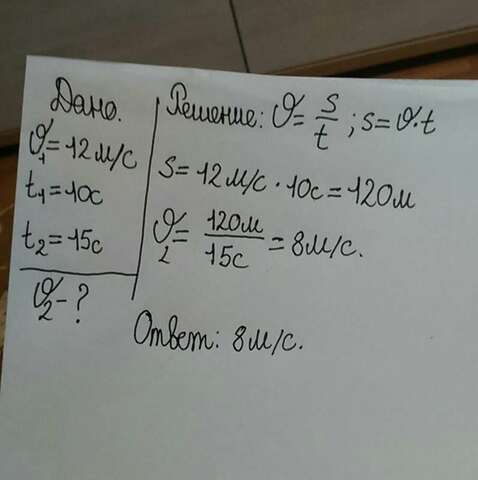 Дано.
𝒗₁=12м/с
t₁=10с
t₂=15с
𝒗₂-?
Решение: 𝒗=s/t; s=𝒗·t
s=12м/с·10с=120м
𝒗₂=120м/15с=8м/с.
Ответ: 8м/с.